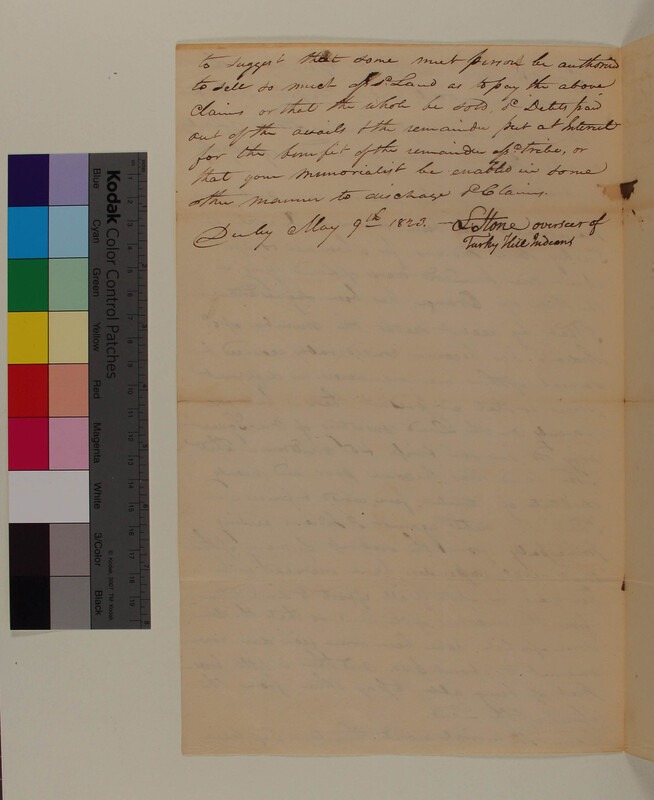 to suggest that some meet person be authorized
to sell so much of sd. Land as to pay the above
claims or that the whole be sold, sd Debts paid
out of the avails & the remainder put at Interest
for the benefit of the remainder of sd tribe, or
that your Memorialist be enabled in some
other manner to discharge sd Claims.
Derby May 9th 1823. Stone overseer of
Turky Hill Indians
Kodak Color Control Patches
Blue
Cyan
Green
Yellow
Red
Magenta
White
3/Color
Black